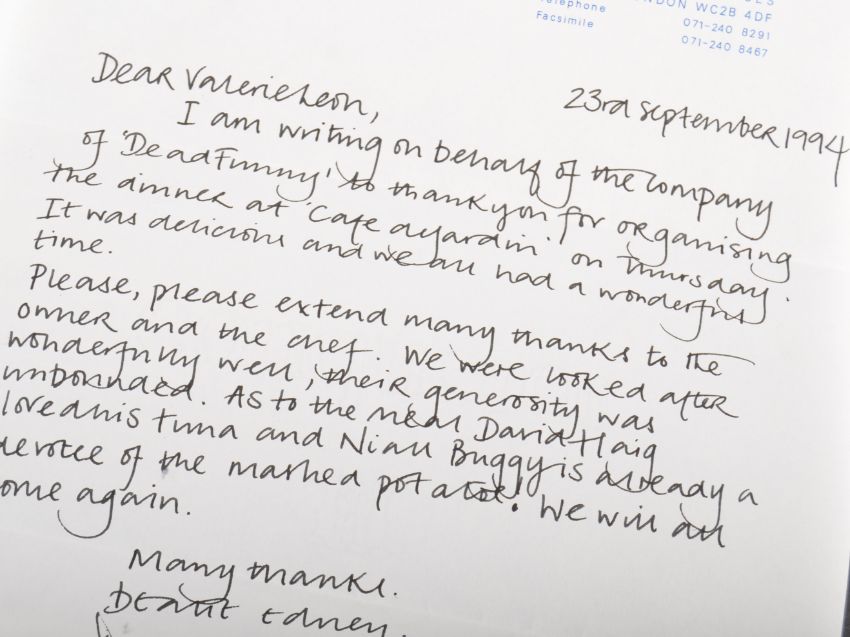 Telephone
LONDON WC2B 4DF
071-240 8291
Facsimile
071-240 8467
23rd September 1994
Dear Valerie Leon,
I am writing on behalf of the company
of 'Dead Funny' to thank you for organising
the dinner at 'Cafe du Jardin' on Thursday.
It was delicious and we all had a wonderful
time.
Please, please extend many thanks to the
owner and the chef. We were looked after
wonderfully well, their generosity was
unbounded. As to the meal David Haig
loved his tuna and Niall Buggy is already a
devotee of the mashed potatoe! We will all
come again.
Many thanks.
Beatie Edney.